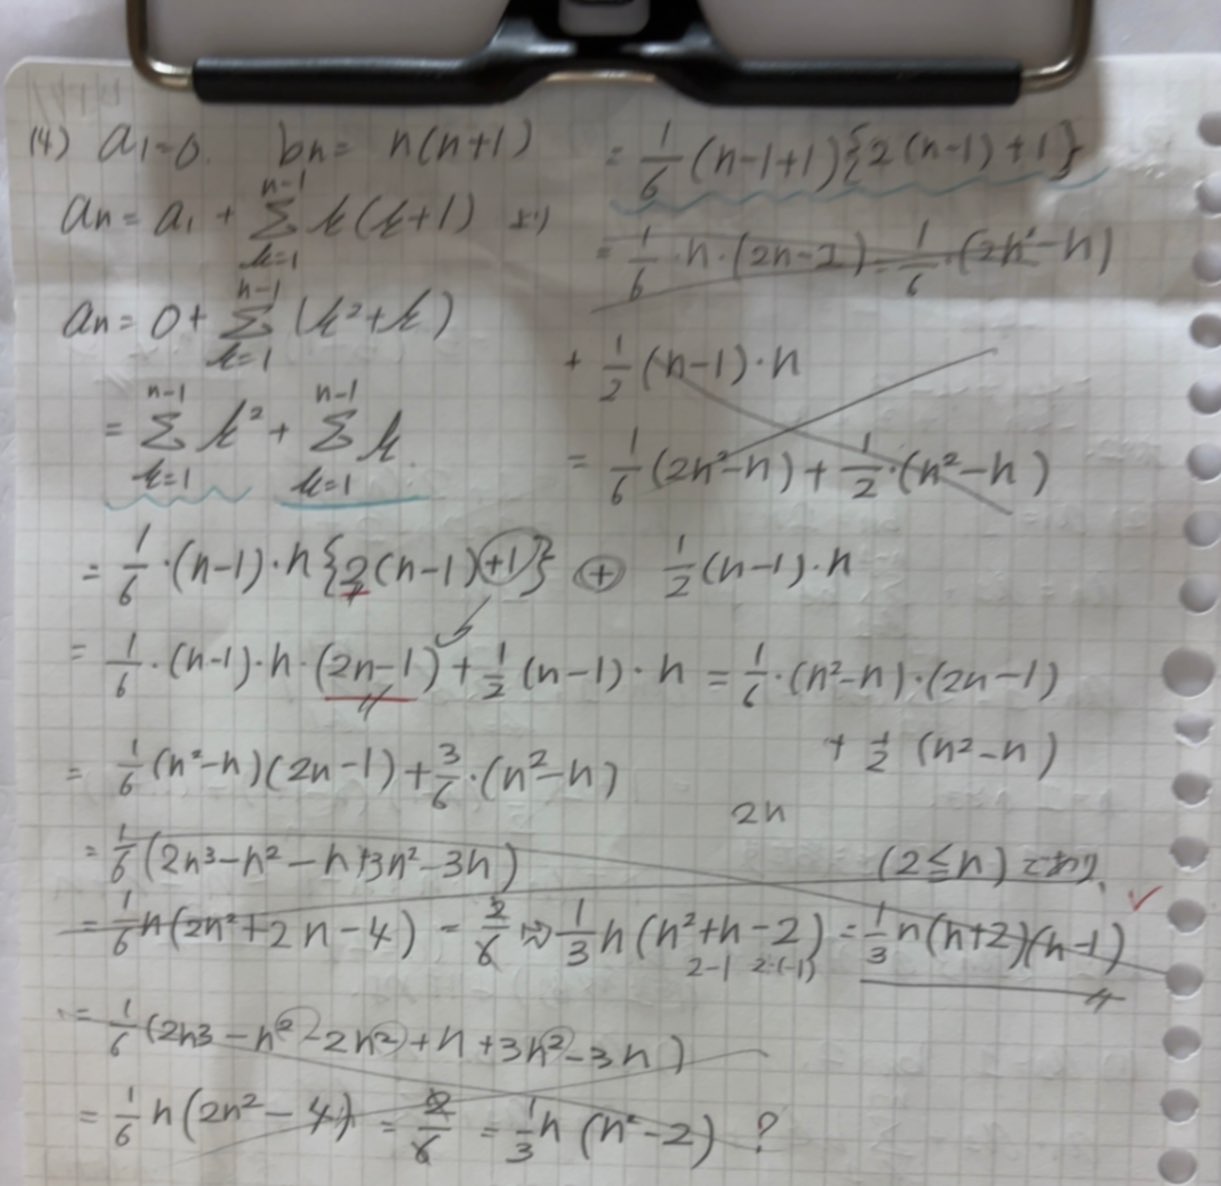 (4) a₁=0. bn= n(n+1)
an= a₁ + Σ[k=1, n-1] k(k+1) より
an= 0+ Σ[k=1, n-1] (k²+k)
= Σ[k=1, n-1] k² + Σ[k=1, n-1] k
= 1/6 (n-1+1){2(n-1)+1}
= 1/6 ·n·(2n-2) = 1/6 ·(2n²-n)
+ 1/2 (n-1)·n
= 1/6 (2n²-n) + 1/2 ·(n²-n)
= 1/6 ·(n-1)·n{2(n-1)+1} + 1/2 (n-1)·n
= 1/6 ·(n-1)·n·(2n-1) + 1/2 (n-1)·n = 1/6 ·(n²-n)·(2n-1)
+ 1/2 (n²-n)
= 1/6 (n²-n)(2n-1) + 3/6 ·(n²-n)
2n
= 1/6 (2n³-n²-n+3n²-3n)
(2≦n) であり、
= 1/6 n(2n²+2n-4) = 2/6 1/3 n(n²+n-2) = 1/3 n(n+2)(n-1)
2-1 2·(-1)
= 1/6 (2n³-n²-2n²+n+3n²-3n)
= 1/6 n(2n²-4) = 2/6 = 1/3 n (n²-2) ?